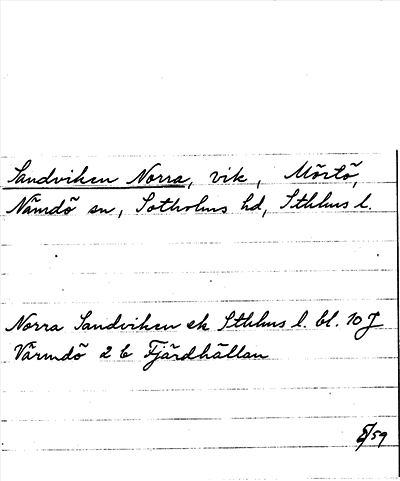 Sandviken Norra, vik, Mörtö,
Nämdö sn, Sotholms hd, Sthlms l.
Norra Sandviken ek Sthlms l. bl. 10 J
Värmdö 2 b Fjärdhällan
/59